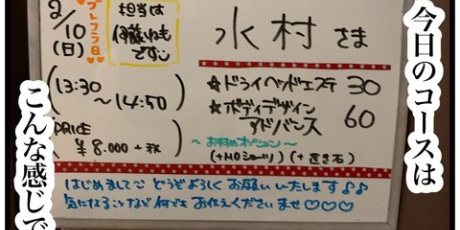 今日のコースは
2/10
(日)
プトフラ日
担当は
伊藤いねも
です
水村さま
(13:30
~14:50)
☆ドライヘッドエステ 30
☆ボディデザイン
アドバンス 60
PRICE
¥8.000+税
~おすすめオプション~
(+MOショーツ) (+置き石)
はじめまして どうぞよろしくお願いいたします♪♪
気になることなど何でもお伝えくださいませ♡♡♡
こんな感じで